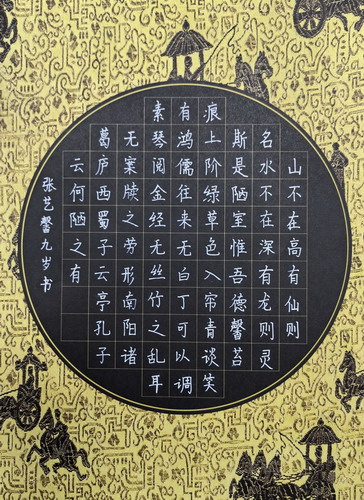 山不在高有仙则
名水不在深有龙则灵
斯是陋室惟吾德馨苔
痕上阶绿草色入帘青谈笑
有鸿儒往来无白丁可以调
素琴阅金经无丝竹之乱耳
无案牍之劳形南阳诸
葛庐西蜀子云亭孔子
云何陋之有
张艺馨九岁书